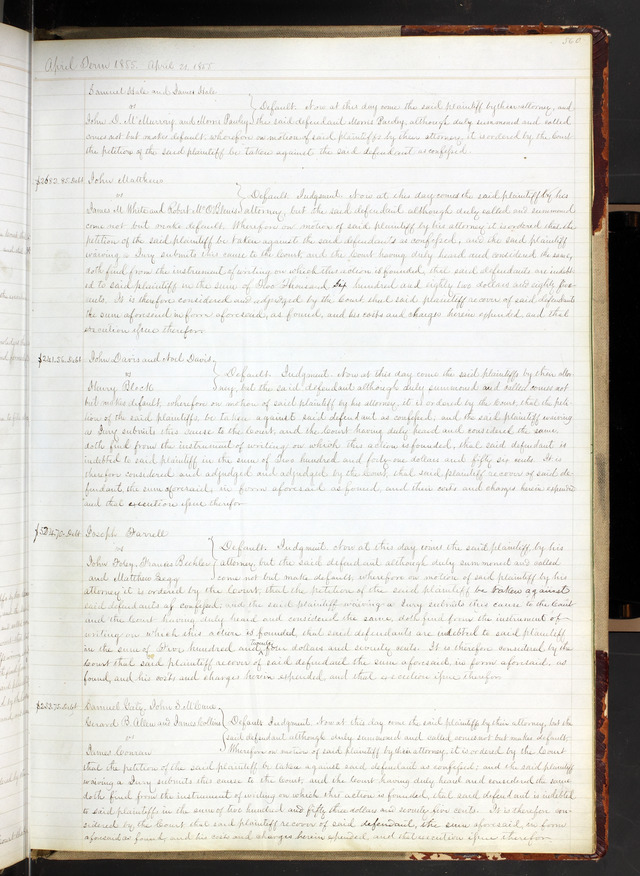 560
April Term 1855. April 21. 1855
Samuel Hale and James Hale
vs } Default. Now at this day come the said plaintiff by their attorney, and
John D. McMurray and Morris Pawley the said defendant Morris Pawley, although duly summoned and called
comes not but makes default. wherefore on motion of said plaintiffs by their attorney, it is ordered by the Court
the petition of the said plaintiff be taken against the said defendant as confessed.
$2682.85 Debt John Matthews
vs } Default Judgment. Now at this day comes the said plaintiff by his
James M White and Robert attorney, but the said defendant although duly called and summoned
come not but make default. Wherefore on motion of said plaintiff by his attorney it is ordered that the
petition of the said plaintiff be taken against the said defendants as confessed, and the said plaintiff
waiving a Jury submits this cause to the Court, and the Court having duly heard and considered the same,
doth find from the instrument of writing on which this action is founded, that said defendants are indebt-
ed to said plaintiff in the sum of Two Thousand Six hundred and eighty two dollars and eighty five
cents. It is therefore considered and adjudged by the Court that said plaintiff recover of said defendants
the sum aforesaid in form aforesaid, as found, and his costs and charges herein expended and that
execution issue therefor.
$241.56 Debt John Davis and Noel Davis
vs } Default. Judgment. Now at this day come the said plaintiffs by their attor-
Henry Block ney, but the said defendant although duly summoned and called comes not
but makes default, wherefore on motion of said plaintiff by his attorney, it is ordered by the Court, that the peti-
tion of the said plaintiffs be taken against said defendant as confessed, and the said plaintiff waiving
a Jury submits this cause to the Court, and the Court having duly heard and considered the same
doth find from the instrument of writing on which this action is founded, that said defendant is
indebted to said plaintiff in the sum of Two hundred and forty one dollars and fifty six cents. It is
therefore considered and adjudged and adjudged by the Court, that said plaintiff recover of said de-
fendant, the sum aforesaid, in form aforesaid as found, and their costs and charges herein expended
and that execution issue therefor
Debt Joseph Farrell
vs } Default. Judgment. Now at this day comes the said plaintiff, by his
John Foley, Francis Beehler attorney but the said defendant although duly summoned and called
and Matthew come not but make default, wherefore on motion of said plaintiff by his
attorney it is ordered by the Court, that the petition of the said plaintiff be taken against
said defendants as confessed, and the said plaintiff waiving a Jury submits this cause to the Court
and the Court having duly heard and considered the same, doth find from the instrument of
writing on which this action is founded, that said defendants are indebted to said plaintiff
in the sum of Five hundred and twenty four dollars and seventy cents. It is therefore considered by the
Court that said plaintiff recover of said defendant the sum aforesaid in form aforesaid, as
found, and his costs and charges herein expended, and that execution issue therefor
$253.75 Debt Samuel Gaty, John
Gerard B. Allen and James Collins } Default Judgment. Now at this day come the said plaintiff by their attorney, but the
vs said defendant although duly summoned and called comes not but makes default.
James Wherefore on motion of said plaintiff by their attorney, it is ordered by the Court
that the petition of the said plaintiff be taken against said defendant as confessed, and the said plaintiff
waiving a Jury submits this cause to the Court, and the Court having duly heard and considered the same
doth find from the instrument of writing on which this action is founded, that said defendant is indebted
to said plaintiffs in the sum of two hundred and fifty three dollars and seventy five cents. It is therefore con-
sidered by the Court that said plaintiff recover of said defendant, the sum aforesaid, in form
aforesaid as found, and his costs and charges herein expended, and that execution issue therefor.